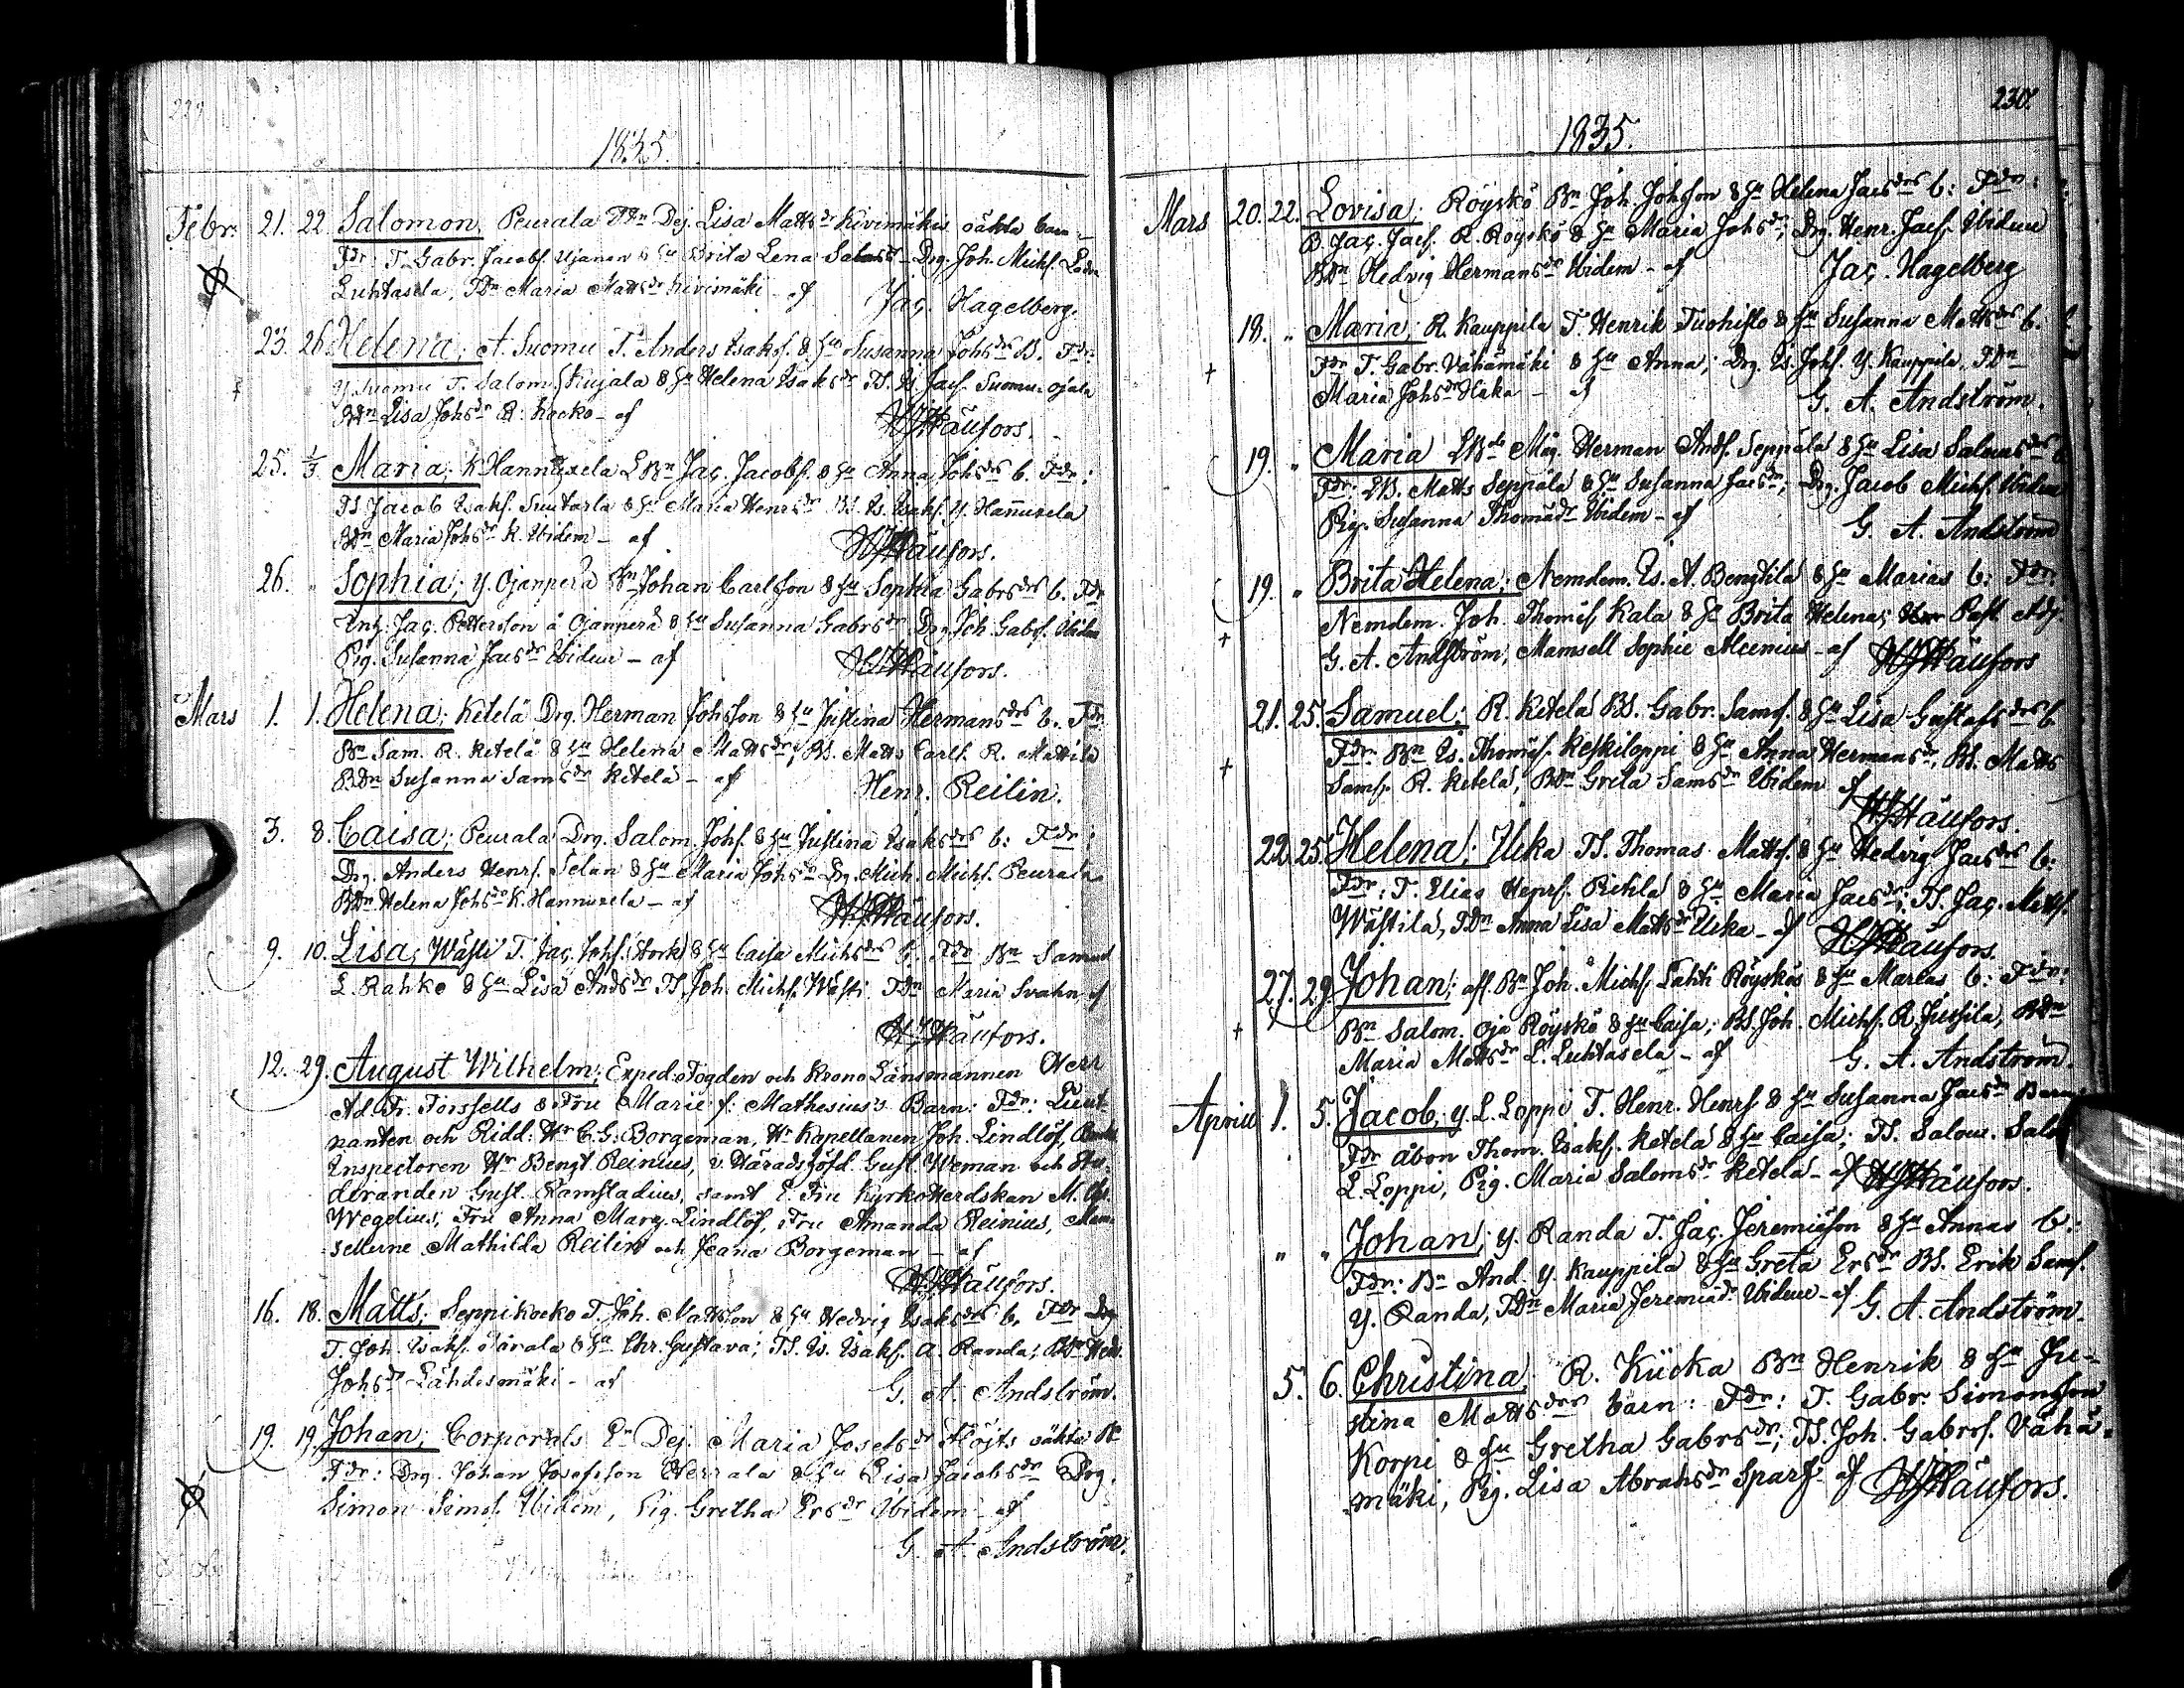 229
1835.
Febr: 21. 22. Salomon, Peurala TDr Dej. Lisa Mattsdr Kivimäkis oäkta barn
Fdr: T. Gabr. Jacobs. Ujanen & hu Brita Lena Salomsdr Drg. Joh. Michs.
Luhtasela, TDr Maria Mattsdr Kivimäki - af Jac. Hagelberg.
23. 26. Helena; A. Suomu T. Anders Isaks. & hu Susanna Johsdrs B. Fdr:
Y. Suomu T. Salom. Kujala & hu Helena Isaksdr TS. Is. Jacs. Suomu-ojala
BDr Lisa Johsdr R. Kocko - af HJHäufors.
25. 1/3 Maria; K. Hannuxela LBn Jac. Jacobs. & hu Anna Johsdrs b. Fdr:
TS. Jacob Isaks. Suutarla & hu Maria Henrsdr BS. Is. Isaks. Y. Hannuxela
BDr Maria Johsdr K. Ibidem - af HJHäufors.
26. " Sophia; Y. Ojanperä Johan Carlsson & hu Sophia Gabrsdrs b. Fdr
Inh. Jac. Pettersson å Ojanperä & hu Susanna Gabrsdr Drg. Joh. Gabrs. Ibidem
Pig. Susanna Jacsdr Ibidem - af HJHäufors.
Mars 1. 1. Helena; Ketelä Drg. Herman Johsson & hu Justina Hermansdrs b. Fdr:
Bn Sam. R. Ketelä & hu Helena Mattsdr; BS. Matts Carls. R. Mattila
BDr Susanna Samsdr Ketelä - af Henr. Reilin.
3. 8. Caisa; Peurala Drg. Salom. Johs. & hu Justina Isaksdrs b: Fdr:
Drg. Anders Henrs. Selan & hu Maria Johsdr Drg. Mich. Michs. Peurala
BDr Helena Johsdr K. Hannuxela - af HJHäufors.
9. 10. Lisa; Wästi T. Jac. Johs. Stork & hu Caisa Michsdrs b. Fdr Bn Samuel
L. Rahko & hu Lisa Andsdr TS. Joh. Michs. Wästi TDr Maria Svahn af
HJHäufors.
12. 29. August Wilhelm; Exped. Fogden och Krono Länsmannen Herr
Ad. Fr. Forssells & Fru Marie f: Mathesius's Barn: Fdr: Lieut-
nanten och Ridd: Hr C. G. Borgeman, Hr Kapellanen Joh. Lindlöf,
Inspectoren Hr Bengt Reinius, v. Häradshöfd. Gust. Weman och Stu-
deranden Gust. Ramstadius, samt E. Fru Kyrkoherdskan M. Chr.
Wegelius, Fru Anna Marg. Lindlöf, Fru Amanda Reinius, Mam-
sellerne Mathilda Reilin och Jeana Borgeman - af
HJHäufors.
16. 18. Matts; Seppikocko T. Joh. Mattsson & hu Hedvig Isaksdrs b. Fdr Drg
T. Joh. Isaks. Särala & hu Chr. Gustava; TS. Is. Isaks. A. Randa; BDr Hedv.
Johsdr Lähdesmäki - af G. A. Andström.
19. 19. Johan; Corporals Er Dej. Maria Josefsdr Flöjts oäkta Bn
Fdr: Drg. Johan Josefsson Herrala & hu Lisa Jacobsdr Drg.
Simon Sims. Ibidem, Pig. Gretha Ersdr Ibidem - af
G. A. Andström.
230.
1835.
Mars 20. 22. Lovisa; Röyskö Bn Joh. Johsson & hu Helena Jacsdrs b: Fdr:
B. Jac. Jacs. R. Röyskö & hu Maria Johsdr; Drg. Henr. Jacs. Ibidem
BDr Hedvig Hermansdr Ibidem - af Jac. Hagelberg
18. " Maria; R. Kauppila T. Henrik Tuohisto & hu Susanna Mattsdrs b.
Fdr T. Gabr. Vähämäki & hu Anna; Drg. Is. Johs. Y. Kauppila, TDr
Maria Johsdr Haka - af G. A. Andström.
19. " Maria Mag. Herman Ands. Seppälä & hu Lisa Salomsdrs b
Fdr: LB. Matts Seppälä & hu Susanna Jacsdr; Drg. Jacob Michs. Ibidem
Pig. Susanna Thomädr Ibidem - af G. A. Andström
19. " Brita Helena; Nemdem. Is. A. Bengtilä & hu Marias b: Fdr:
Nemdem. Joh. Thomäs. Kala & hu Brita Helena; Herr Past. Adj.
G. A. Andström, Mamsell Sophie Alcenius - af HJHäufors
21. 25. Samuel; R. Ketelä BS. Gabr. Sams. & hu Lisa Gustafsdrs b
Fdr: Bn Is. Thomäs. Keskiloppi & hu Anna Hermansdr, BS. Matts
Sams. R. Ketelä, BDr Greta Samsdr Ibidem af
HJHäufors.
22. 25. Helena; Ucka TS. Thomas Matts. & hu Hedvig Jacsdrs b:
Fdr: T. Elias Henrs. Pichlä & hu Maria Jacsdr; TS. Jac. Matts.
Wästilä, TDr Anna Lisa Mattsdr Ucka - af HJHäufors.
27. 29. Johan; aff. Bn Joh. Michs. Lahti Röyskös & hu Marias b: Fdr:
Bn Salom. Oja Röyskö & hu Caisa; BS. Joh. Michs. R. Jussila, BDr
Maria Mattsdr L. Luhtasela - af G. A. Andström.
Aprill 1. 5. Jacob; Y. L. Loppi T. Henr. Henrs. & hu Susanna Jacsdrs Barn
Fdr åbon Thom. Isaks. Ketelä & hu Caisa; TS. Salom. Salom
L. Loppi, Pig. Maria Salomsdr Ketelä - af HJHäufors.
" " Johan; Y. Randa T. Jac. Jeremiäson & hu Annas b:
Fdr: Bn And. Y. Kauppila & hu Greta Ersdr BS. Erik Sams.
Y. Randa, TDr Maria Jeremiädr Ibidem - af G. A. Andström.
5. 6. Christina; R. Kücka Bn Henrik & hu Ju-
stina Mattsdrs barn: Fdr: T. Gabr. Simonsson
Korpi & hu Gretha Gabrsdr; TS. Joh. Gabrs. Vähä-
mäki, Pig. Lisa Abrahsdr Sparf - af HJHäufors.